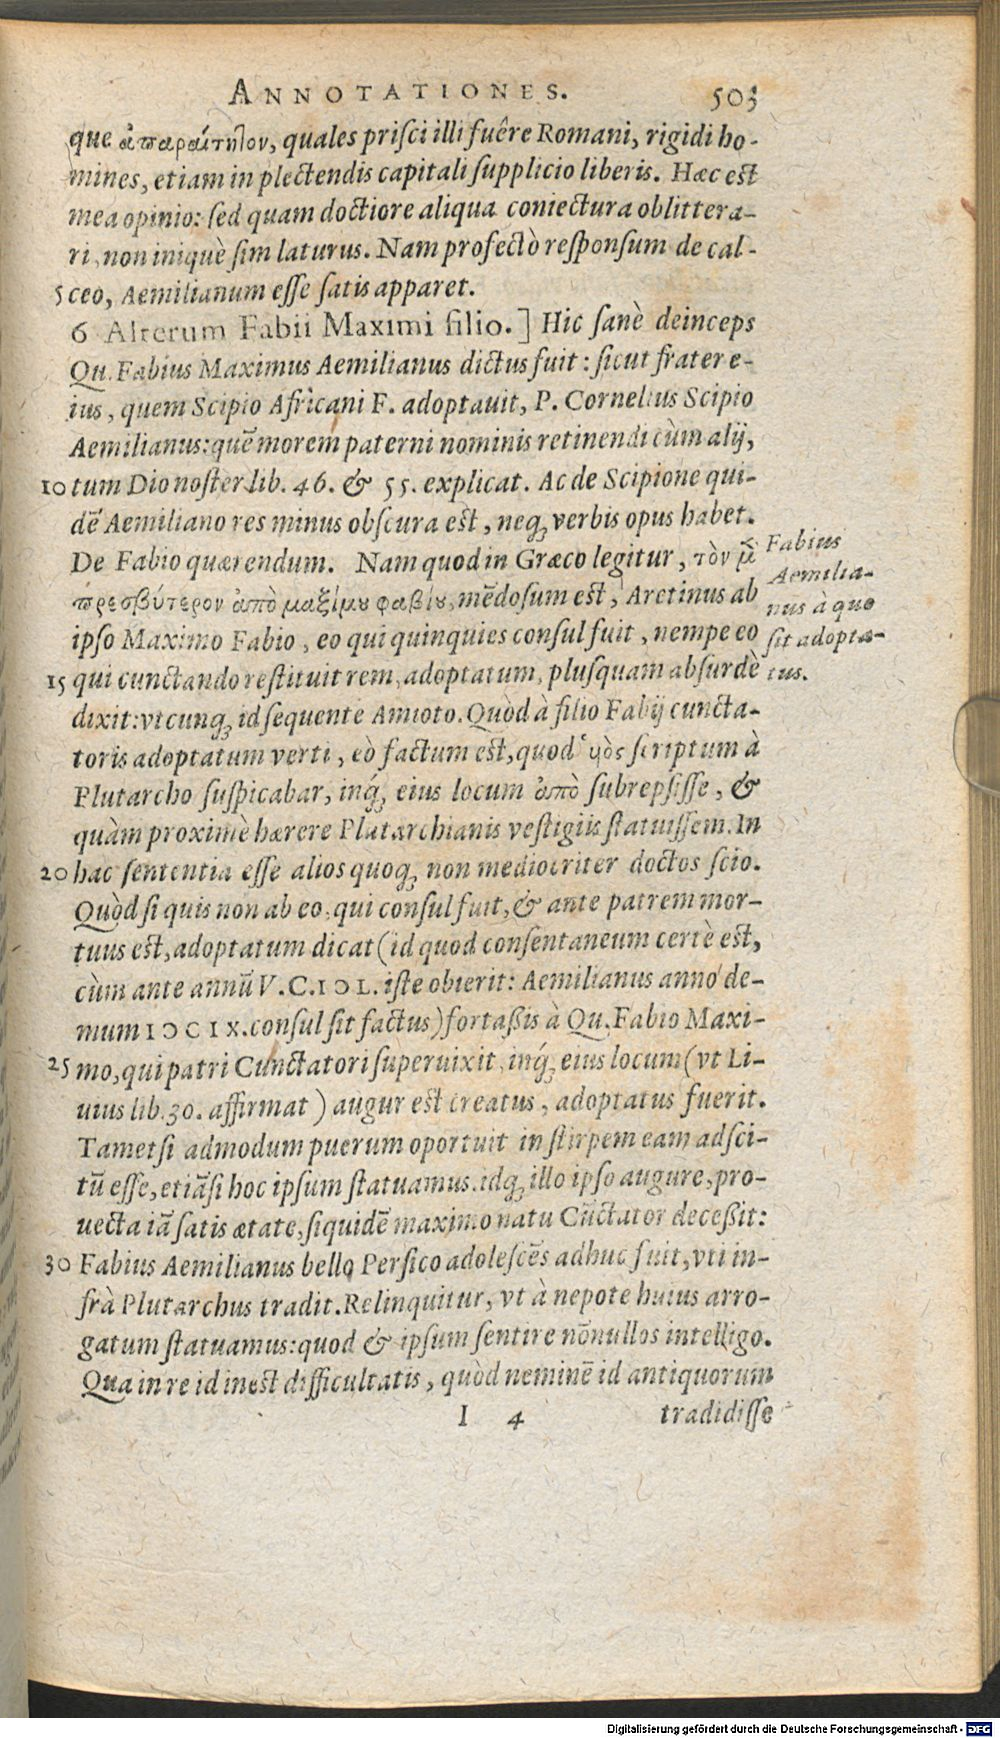 ANNOTATIONES. 503
que ἀπαραίτητον, quales priſci illi fuêre Romani, rigidi ho-
mines, etiam in plectendis capitali ſupplicio liberis. Hæc eſt
mea opinio: ſed quam doctiore aliqua coniectura oblittera-
ri, non iniquè ſim laturus. Nam profectò reſponſum de cal-
5 ceo, Aemilianum eſſe ſatis apparet.
6 Alterum Fabii Maximi filio.] Hic ſanè deinceps
Qu. Fabius Maximus Aemilianus dictus fuit: ſicut frater e-
ius, quem Scipio Africani F. adoptauit, P. Cornelius Scipio
Aemilianus: quẽ morem paterni nominis retinendi cùm alij,
10 tum Dio noſter lib. 46. & 55. explicat. Ac de Scipione qui-
dẽ Aemiliano res minus obſcura eſt, neq; verbis opus habet.
De Fabio quærendum. Nam quod in Græco legitur, τὸν μ̀
πρεσβύτερον ἀπὸ μαξίμου φαβίου, mẽdoſum eſt, Aretinus ab
ipſo Maximo Fabio, eo qui quinquies conſul fuit, nempe eo
15 qui cunctando reſtituit rem, adoptatum, pluſquam abſurdè
dixit: vtcunq; id ſequente Amioto. Quòd à filio Fabij cuncta-
toris adoptatum verti, eò factum eſt, quod ὑὸς ſcriptum à
Plutarcho ſuſpicabar, inq́; eius locum ἀπὸ ſubrepſiſſe, &
quàm proximè hærere Plutarchianis veſtigiis ſtatuiſſem. In
20 hac ſententia eſſe alios quoq; non mediocriter doctos ſcio.
Quòd ſi quis non ab eo, qui conſul fuit, & ante patrem mor-
tuus eſt, adoptatum dicat (id quod conſentaneum certè eſt,
cùm ante annũ V.C. IƆL. iſte obierit: Aemilianus anno de-
mum IƆCIX. conſul ſit factus) fortaßis à Qu. Fabio Maxi-
25 mo, qui patri Cunctatori ſuperuixit, inq́; eius locum (vt Li-
uius lib. 30. affirmat) augur eſt creatus, adoptatus fuerit.
Tametſi admodum puerum oportuit in ſtirpem eam adſci-
tũ eſſe, etiãſi hoc ipſum ſtatuamus. idq; illo ipſo augure, pro-
uecta iã ſatis ætate, ſiquidẽ maximo natu Cũctator deceßit:
30 Fabius Aemilianus bello Perſico adoleſcẽs adhuc fuit, vti in-
frà Plutarchus tradit. Relinquitur, vt à nepote huius arro-
gatum ſtatuamus: quod & ipſum ſentire nõnullos intelligo.
Qua in re id ineſt difficultatis, quòd neminẽ id antiquorum
I 4 tradidiſſe
Fabius
Aemilia-
nus à quo
ſit adopta-
tus.
Digitalisierung gefördert durch die Deutsche Forschungsgemeinschaft - DFG